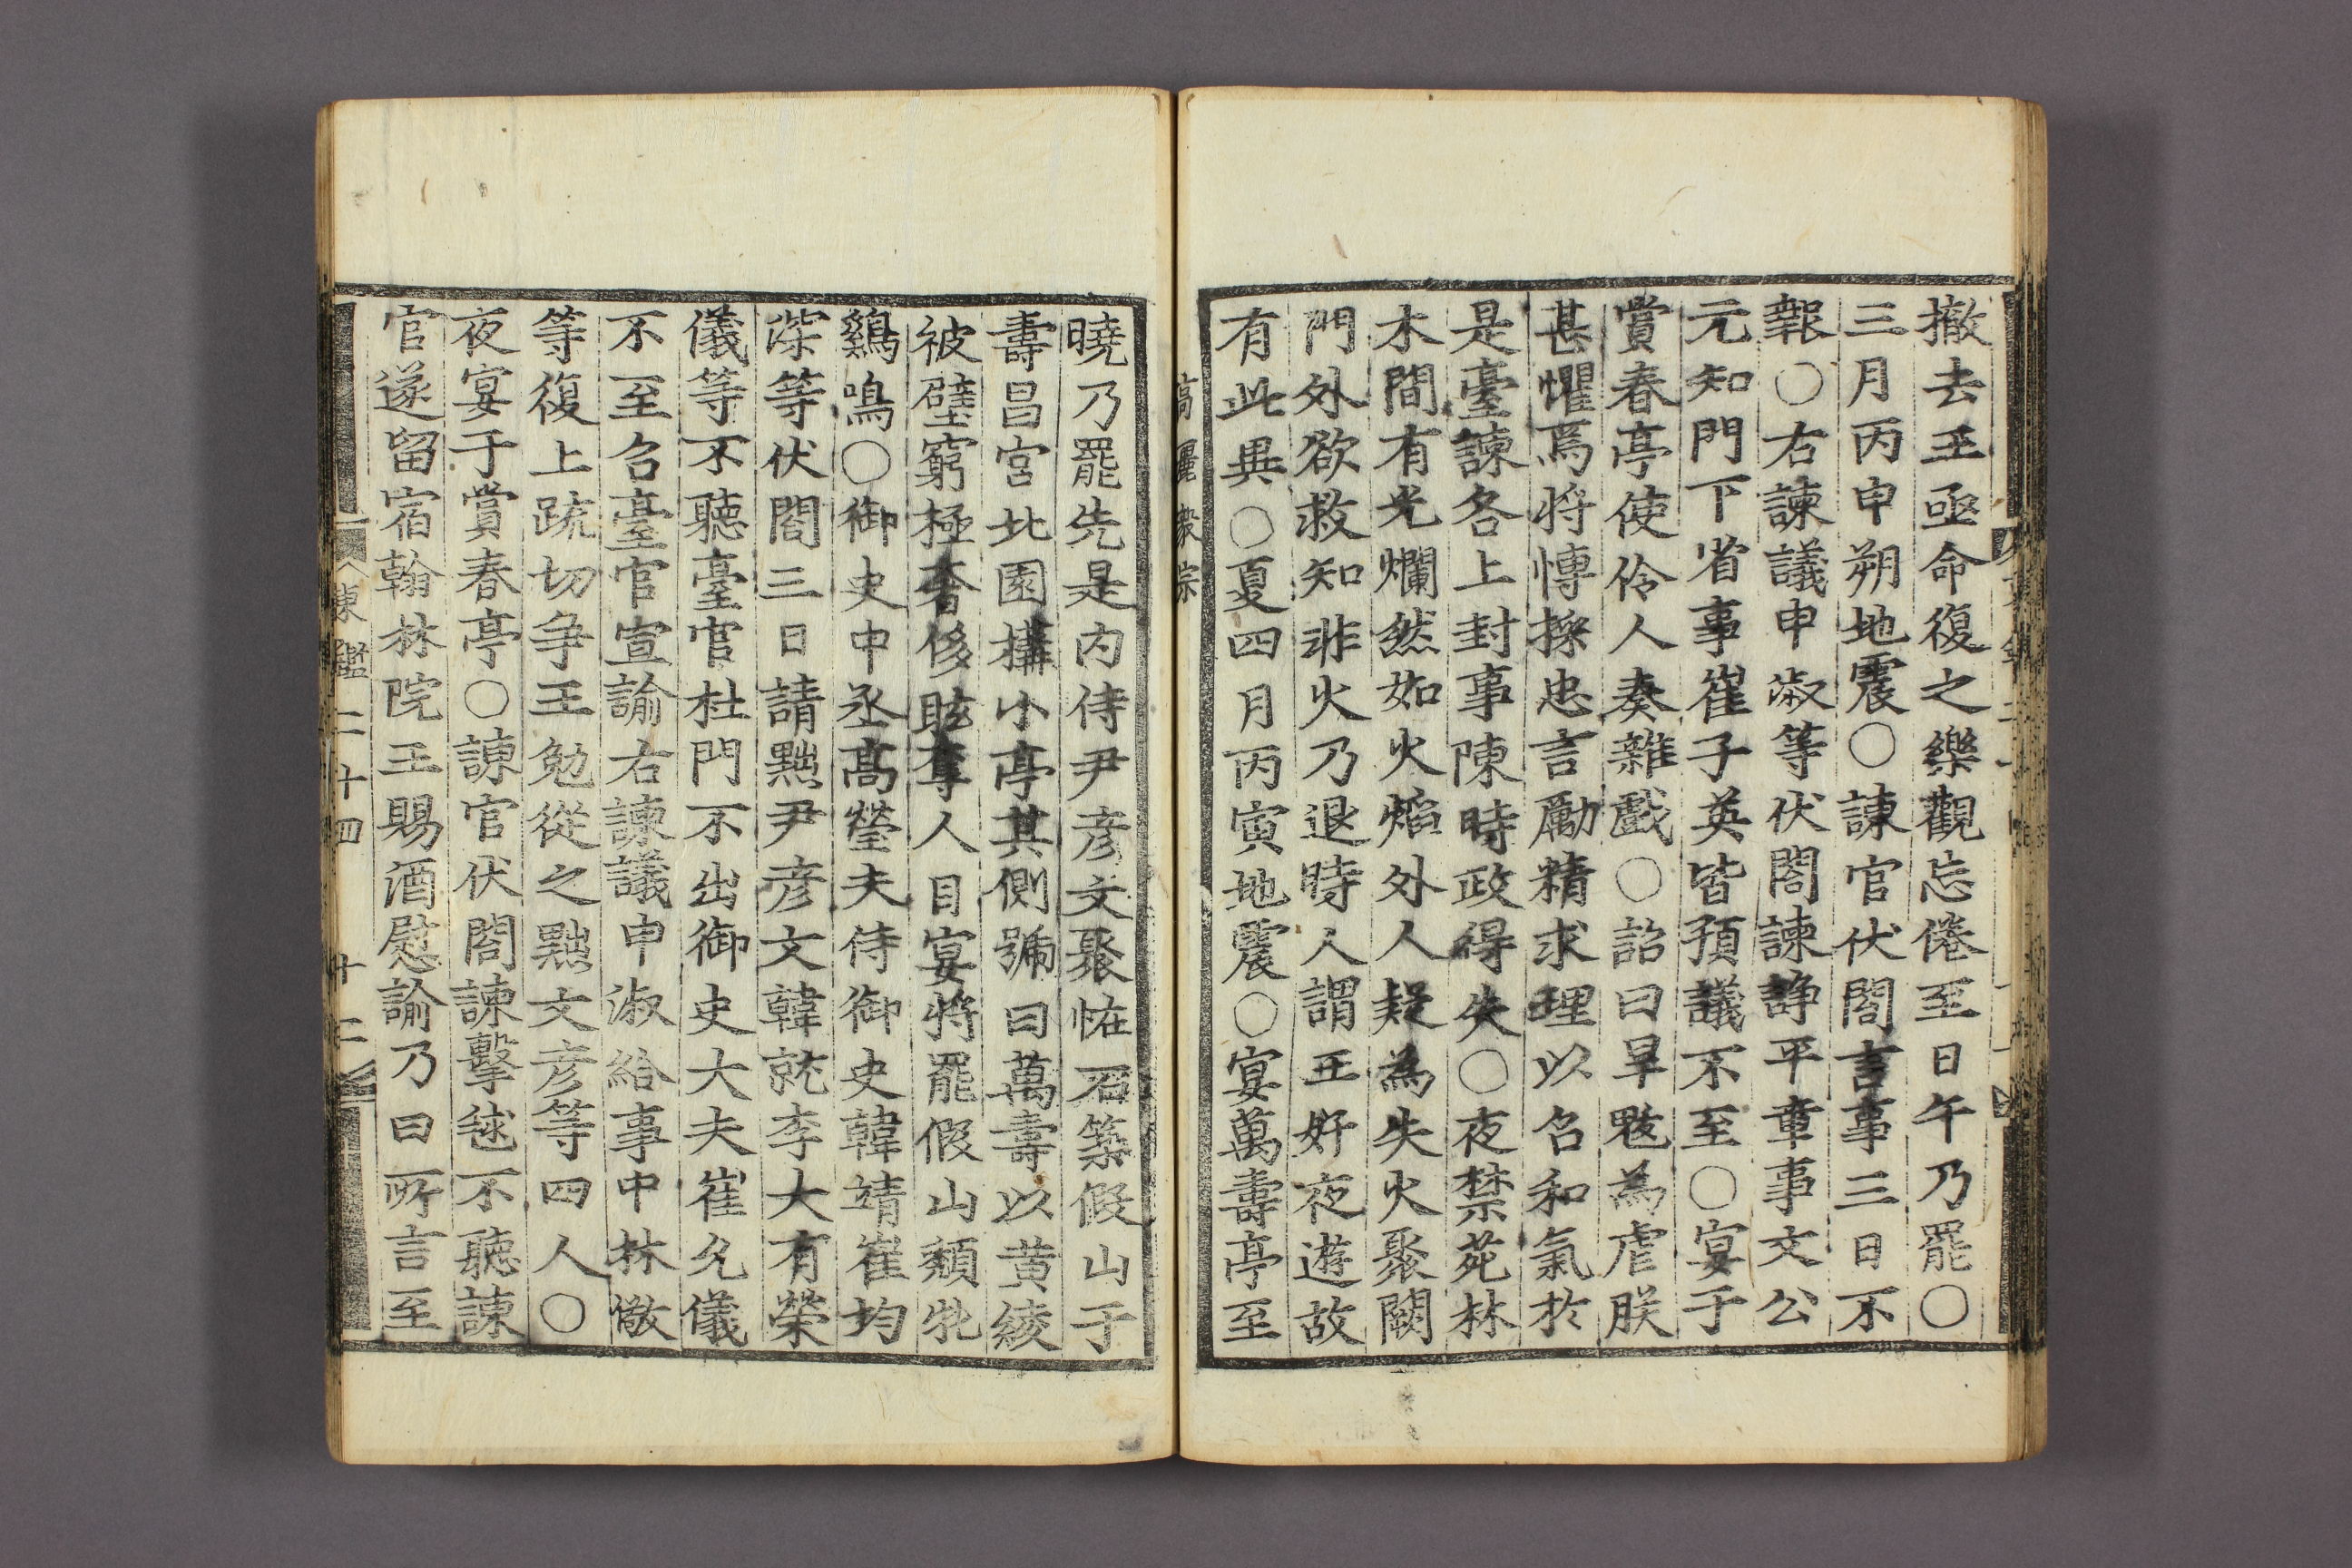 撤去王亟命復之樂觀忘倦至日午乃罷〇
三月丙申朔地震〇諫官伏閤言事三日不
報〇右諫議申淑等伏閤諫諍平章事文公
元知門下省事崔子英皆預議不至〇宴于
賞春亭使伶人奏雜戱〇詔曰旱魃為虐朕
甚懼焉將慱採忠言勵精求理以召和氣於
是臺諫各上封事陳時政得失〇夜禁苑林
木間有光爛然如火焰外人疑為失火聚闕
門外欲救知非火乃退時人謂王好夜遊故
有此異〇夏四月丙寅地震〇宴萬壽亭至
高麗毅宗
曉乃罷先是內侍尹彦文聚恠石築假山于
壽昌宮北園搆小亭其側號曰萬壽以黄綾
被壁窮極奢侈眩奪人目宴將罷假山頹牝
鷄鳴〇御史中丞高瑩夫侍御史韓靖崔均
深等伏閤三日請黜尹彦文韓就李大有榮
儀等不聽臺官杜門不出御史大夫崔允儀
不至召臺官宣諭右諫議申淑給事中林儆
等復上疏切争王勉從之黜文彦等四人〇
夜宴于賞春亭〇諫官伏閤諫擊毬不聽諫
官遂留宿翰林院王賜酒慰諭乃曰所言至
東鑑二十四 十二